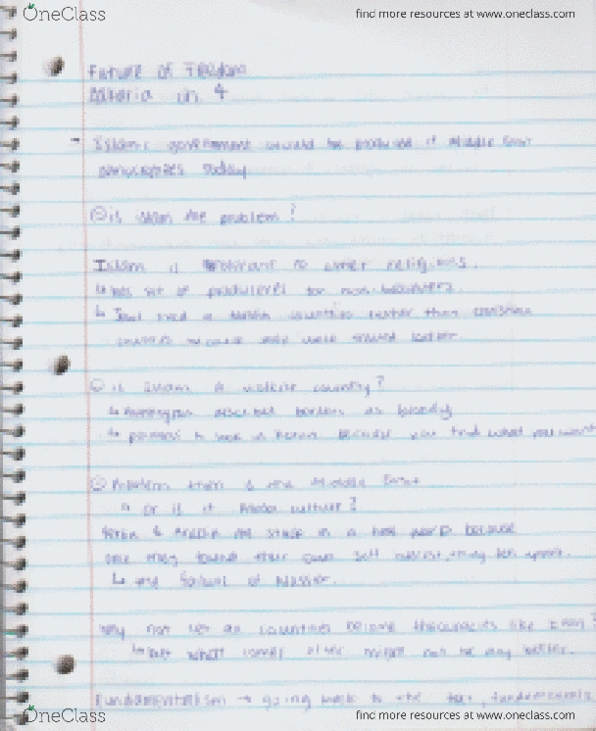 OneClass
find more resources at www.oneclass.com
Future of Freedom
Zakaria ch. 4
- Islamic government would be produced if Middle East
today
is Islam the problem?
Islam is to other religions.
↳ has set of for non-believers.
↳ lived in countries rather than christian
because they were treated better
is Islam a country?
↳ described borders as bloody
↳ to look in Koran because you find what you want
Problem then is the Middle East
↳ or is it Arab culture?
& stuck in a because
once they found their own self interest, they fell apart.
↳ the failure of Nasser.
Why not let all countries become theocracies like Iran?
↳ but what comes after might not be any better.
Fundamentalism → going back to the text, fundamentals
OneClass
find more resources at www.oneclass.com